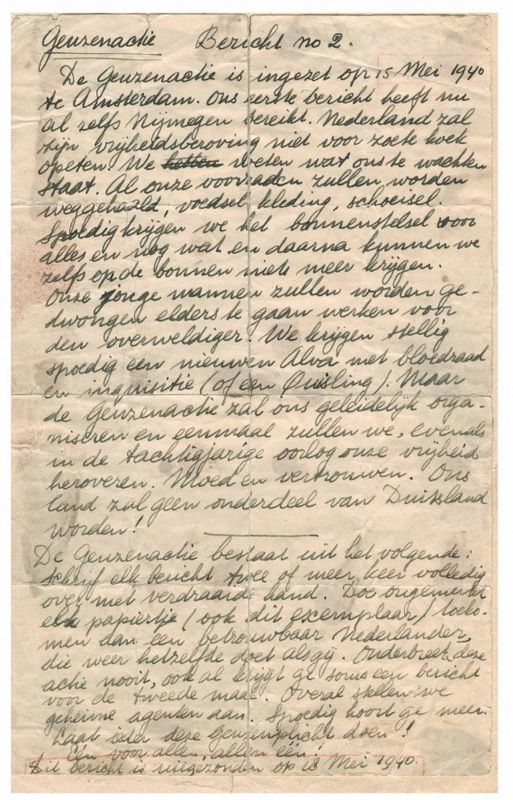 Geuzenactie Bericht no 2.
De Geuzenactie is ingezet op 15 Mei 1940
te Amsterdam. Ons eerste bericht heeft nu
al zelfs Nijmegen bereikt. Nederland zal
zijn vrijheidsberoving niet voor zoete koek
opeten. We hebben weten wat ons te wachten
staat. Al onze voorraden zullen worden
weggehaald, voedsel, kleding, schoeisel.
Spoedig krijgen we het bonnenstelsel voor
alles en nog wat en daarna kunnen we
zelfs op de bonnen niets meer krijgen.
Onze jonge mannen zullen worden ge-
dwongen elders te gaan werken voor
den overweldiger. We krijgen stellig
spoedig een nieuwen Alva met bloedraad
en inquisitie (of een Quisling). Maar
de Geuzenactie zal ons geleidelijk orga-
niseren en eenmaal zullen we, evenals
in de tachtigjarige oorlog onze vrijheid
heroveren. Moed en vertrouwen. Ons
land zal geen onderdeel van Duitsland
worden!
De Geuzenactie bestaat uit het volgende:
Schrijf elk bericht twee of meer keer volledig
over met verdraaide hand. Doe ongemerkt
elk papiertje (ook dit exemplaar) toeko-
men dan een betrouwbaar Nederlander,
die weer hetzelfde doet als gij. Onderbreek deze
actie nooit, ook al krijgt ge soms een bericht
voor de tweede maal. Overal stellen we
geheime agenten aan. Spoedig hoort ge meer.
Laat ieder deze geuzenplicht doen!
Eén voor allen, allen één!
Dit bericht is uitgezonden op 18 Mei 1940.